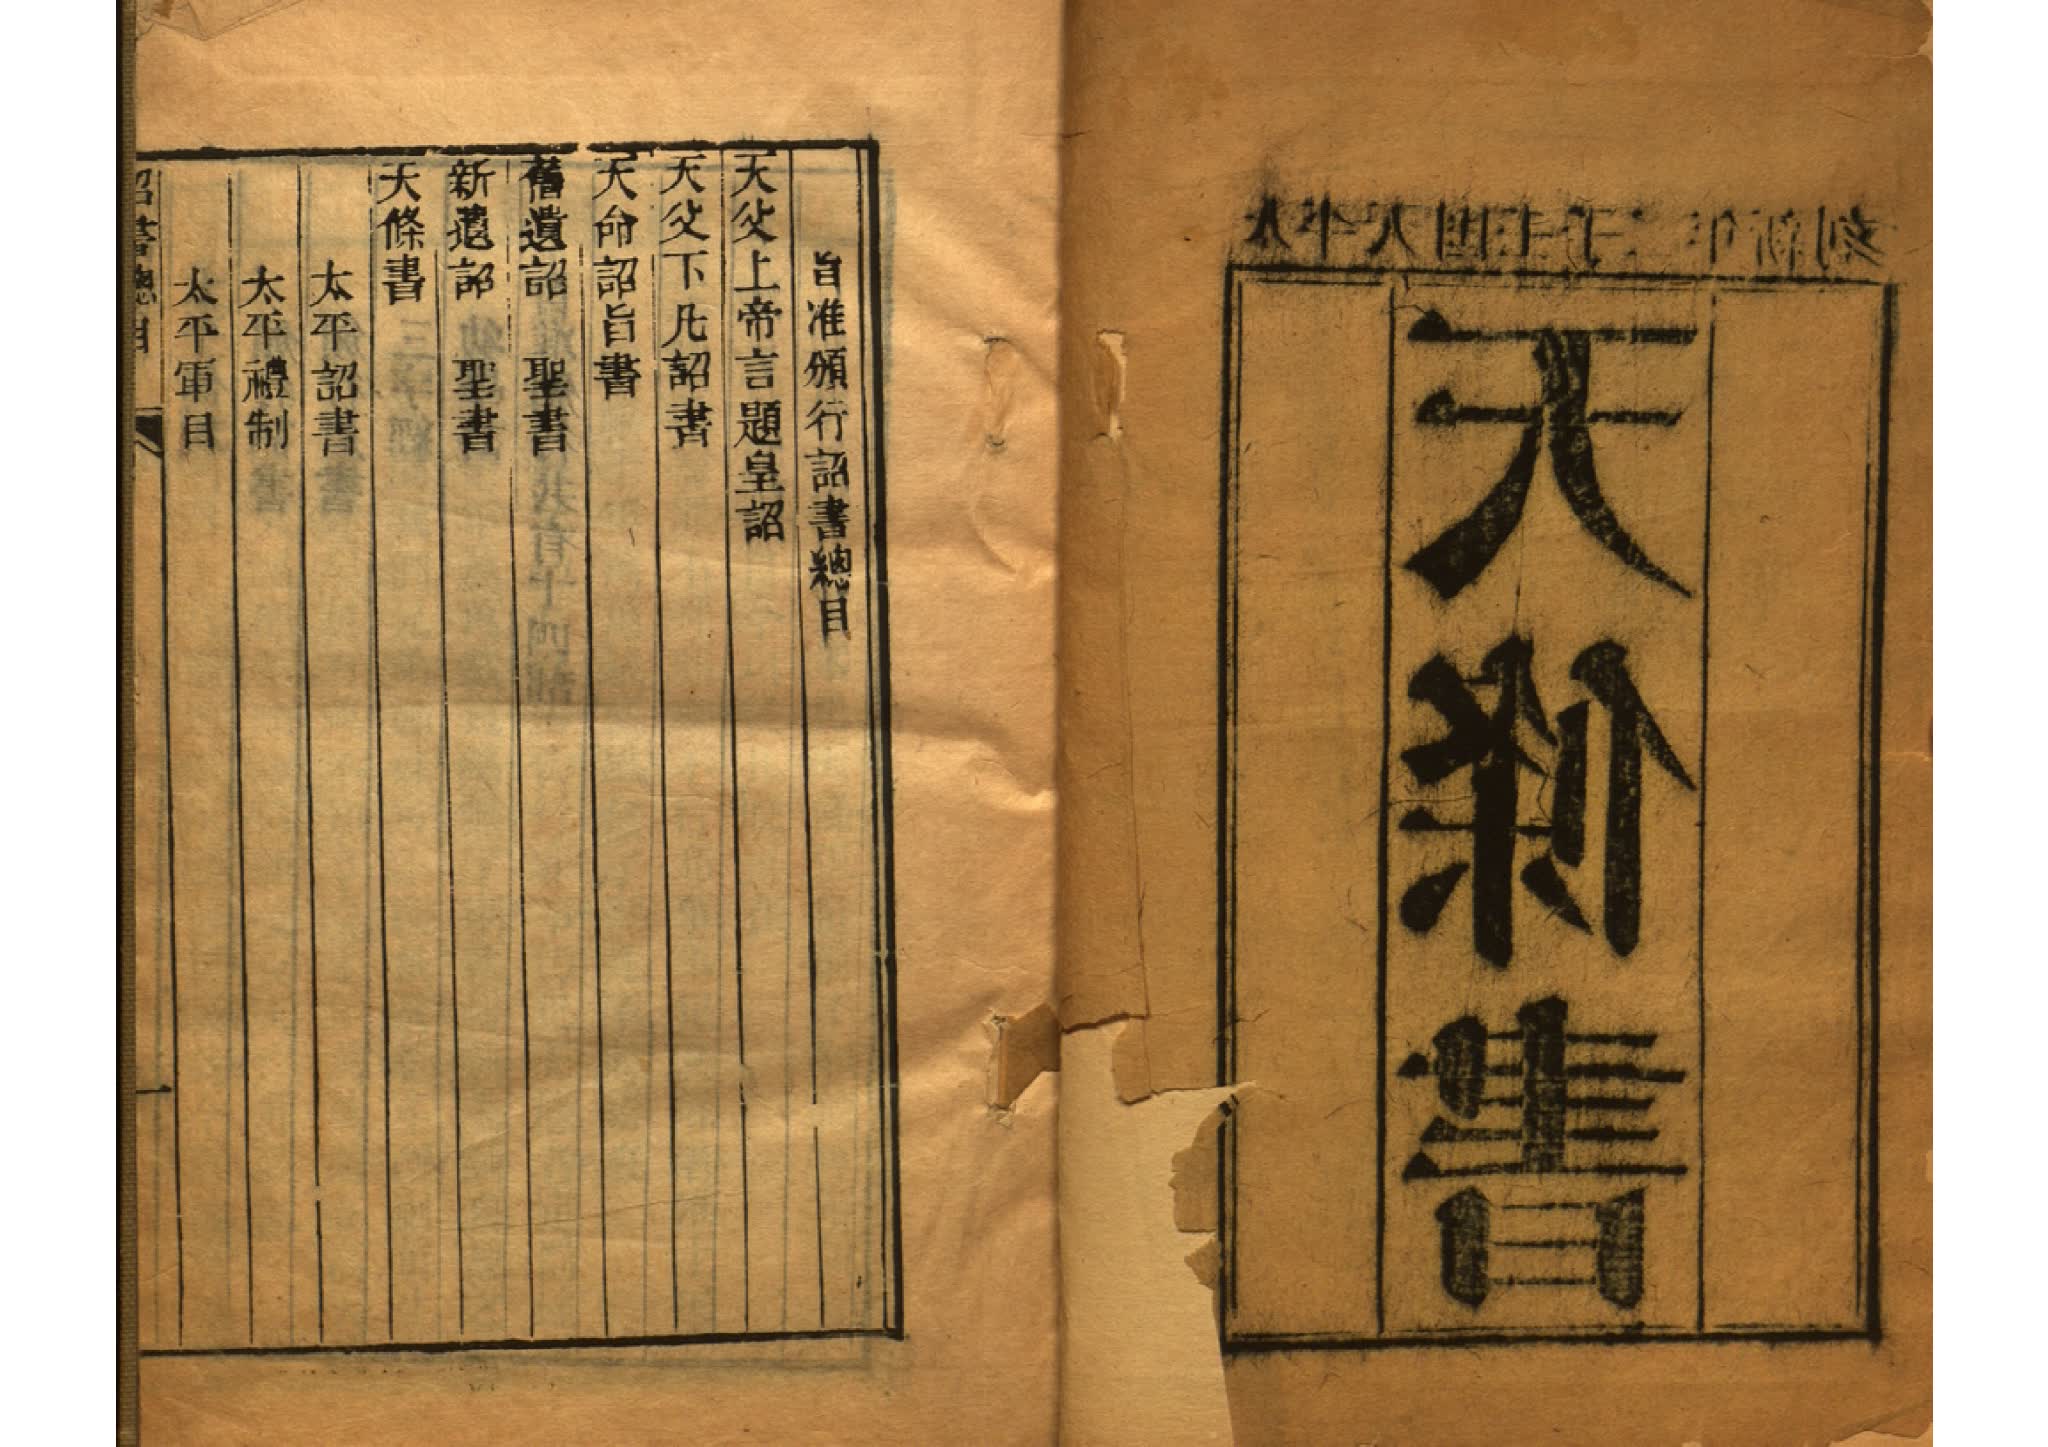 太平天囯壬子二年新刻
天條書
旨准頒行詔書總目
天父上帝言題皇詔
天父下凡詔書
天命詔旨書
舊遺詔 聖書
新遺詔 聖書
天條書
太平詔書
太平禮制
太平軍目
詔書總目 一